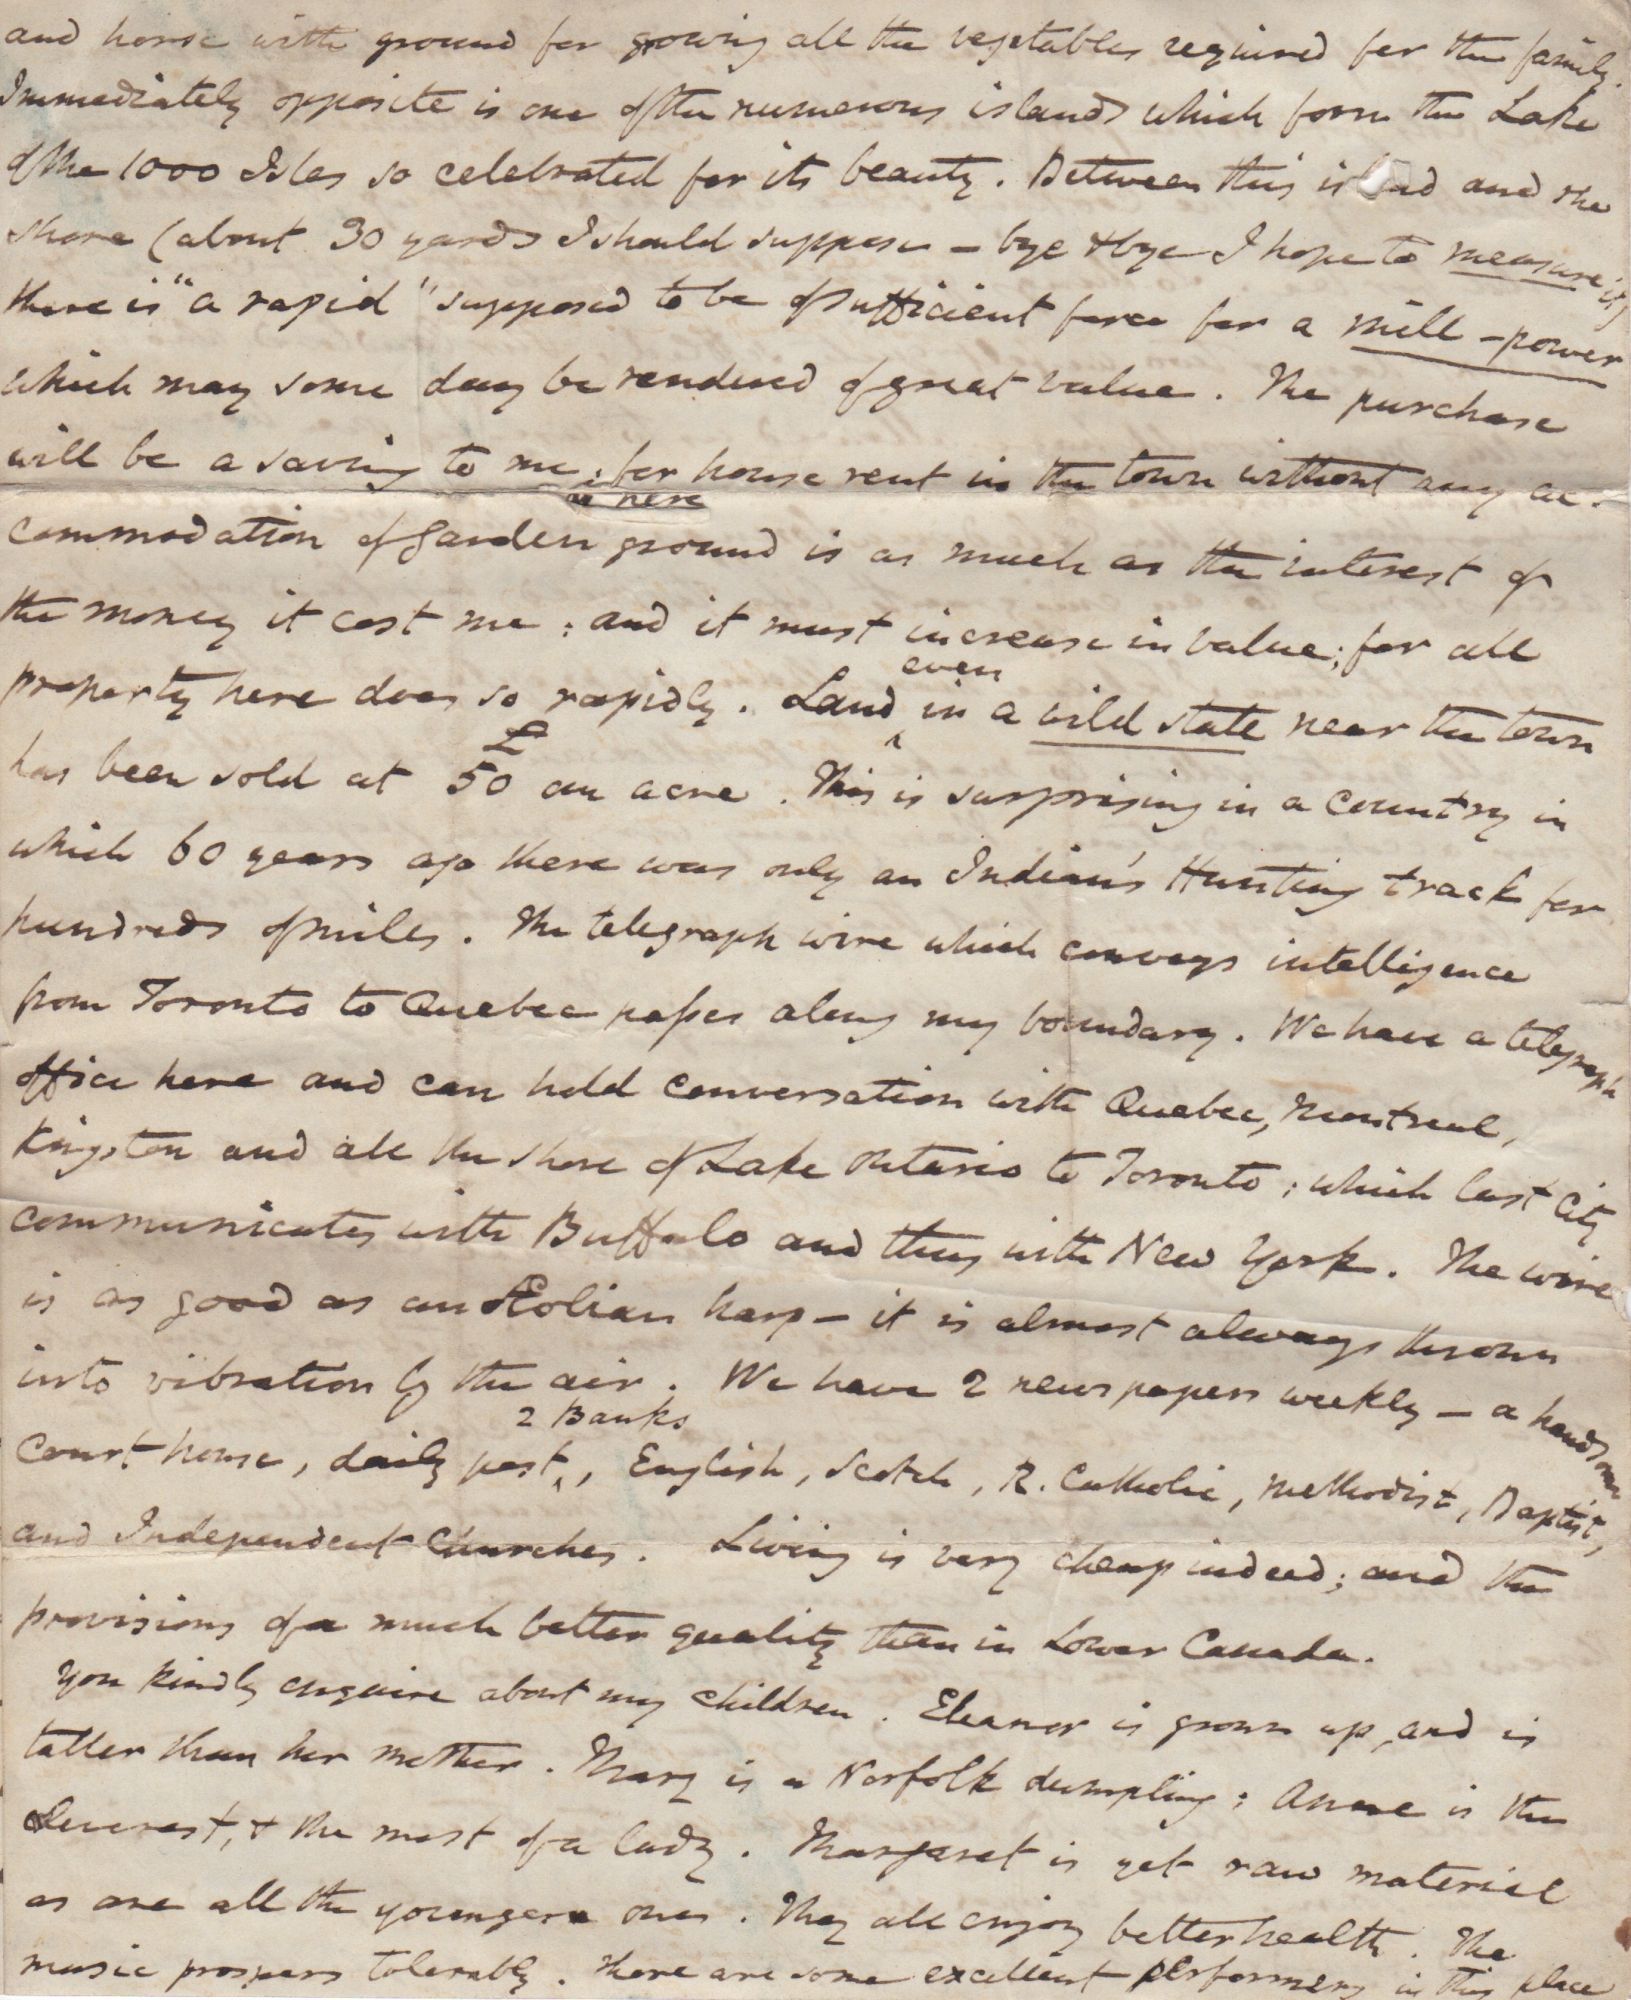 and horse with ground for growing all the vegetables required for the family.
Immediately opposite is one of the numerous islands which form the Lake
of the 1000 Isles so celebrated for its beauty. Between this island and the
shore (about 30 yards I should suppose – bye & bye I hope to measure it)
there is "a rapid" supposed to be of sufficient force for a mill-power
which may some day be rendered of great value. The purchase
will be a saving to me; for house rent in the town without any ac-
here
commodation of garden ground is as much as the interest of
the money it cost me; and it must increase in value; for all
property here does so rapidly. Land ^even in a wild state near the town
has been sold at £50 an acre. This is surprising in a country in
which 60 years ago there was only an Indian's Hunting track for
hundreds of miles. The telegraph wire which conveys intelligence
from Toronto to Quebec passes along my boundary. We have a telegraph
office here and can hold conversation with Quebec, Montreal,
Kingston and all the shore of Lake Ontario to Toronto; which last city
communicates with Buffalo and thus with New York. The wire
is as good as an Æolian harp – it is almost always thrown
into vibration by the air. We have 2 newspapers weekly – a handsome
Court house, daily post, ^2 Banks, English, Scotch, R. Catholic, Methodist, Baptist,
and Independent Churches. Living is very cheap indeed; and the
provisions of a much better quality than in Lower Canada.
You kindly enquire about my children. Eleanor is grown up, and is
taller than her mother. Mary is a Norfolk dumpling; Anne is the
cleverest, & the most of a lady. Margaret is yet raw material
as are all the younger ones. They all enjoy better health. The
music prospers tolerably. There are some excellent performers in this place